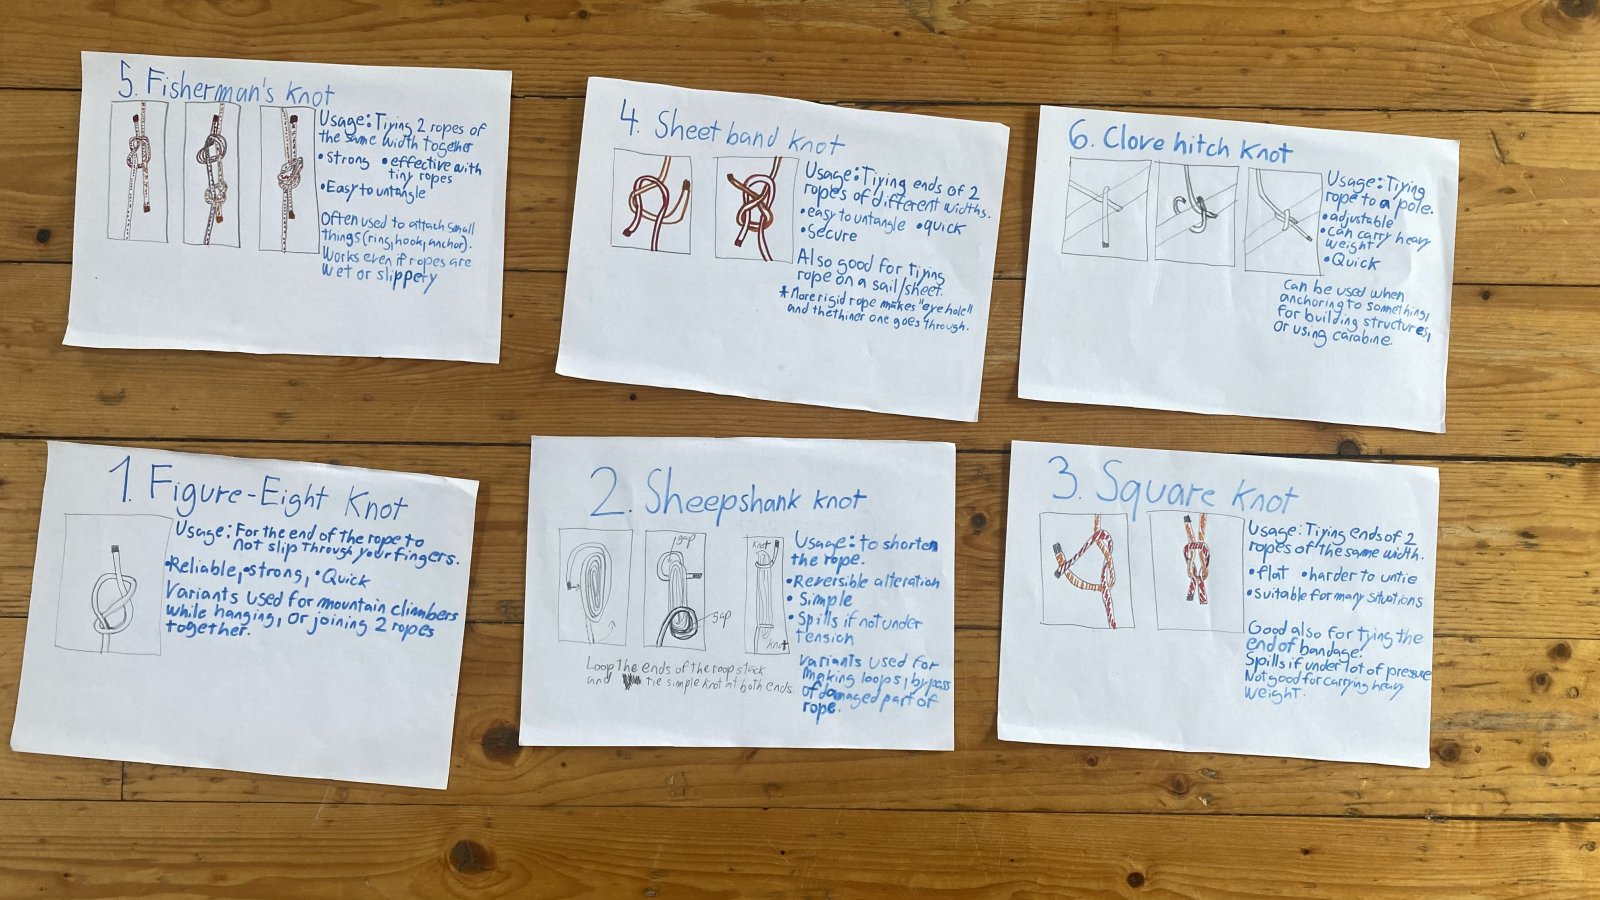 5. Fisherman's Knot
Usage: Tiying 2 ropes of
the same width together
•strong •effective with
tiny ropes
•Easy to untangle
Often used to attach small
things (ring, hook, anchor).
Works even if ropes are
wet or slippery
4. Sheet band knot
Usage: Tiying ends of 2
ropes of different widths.
•easy to untangle •quick
•Secure
Also good for tiying
rope on a sail/sheet.
*More rigid rope makes "eye hole"
and the thiner one goes through.
6. Clove hitch Knot
Usage: Tiying
rope to a pole.
•adjustable
•can carry heavy
weight
•Quick
Can be used when
anchoring to something,
for building structures,
or using carabine.
1. Figure-Eight Knot
Usage: For the end of the rope to
not slip through your fingers.
•Reliable, •strong, •Quick
Variants used for mountain climbers
while hanging, or joining 2 ropes
together.
2. Sheepshank knot
gap
gap
knot
knot
Loop the ends of the roop stack
and tie simple knot at both ends.
Usage: to shorten
the rope.
•Reversible alteration
•Simple
•Spills if not under
tension
Variants used for
making loops, bypass
of damaged part of
rope.
3. Square Knot
Usage: Tiying ends of 2
ropes of the same width.
•flat •harder to untie
•suitable for many situations
Good also for tying the
end of bandage.
Spills if under lot of pressure
Not good for carrying heavy
weight.